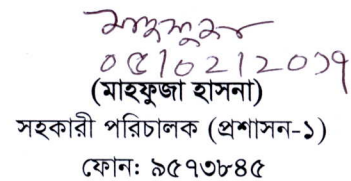 মাহফুজা
০৫/০২/২০১৭
(মাহফুজা হাসনা)
সহকারী পরিচালক (প্রশাসন-১)
ফোন: ৯৫৭৩৮৪৫